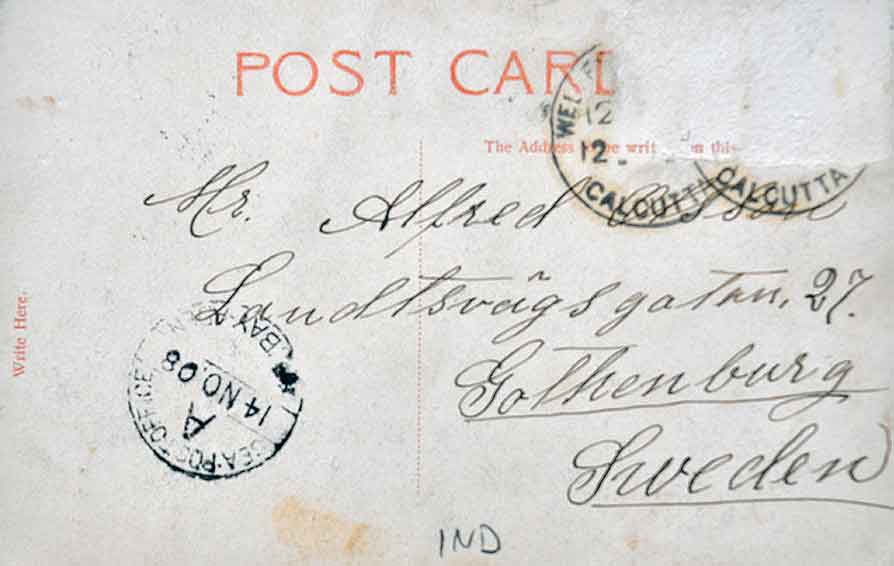 POST CARD
The Address be writ on this
WELLE
12
12
CALCUTTA
CALCUTTA
Mr. Alfred
Landtsvägsgatan, 27.
Gothenburg
Sweden
Write Here.
SEA POST OFFICE
BAY
14 NO. 08
A
IND